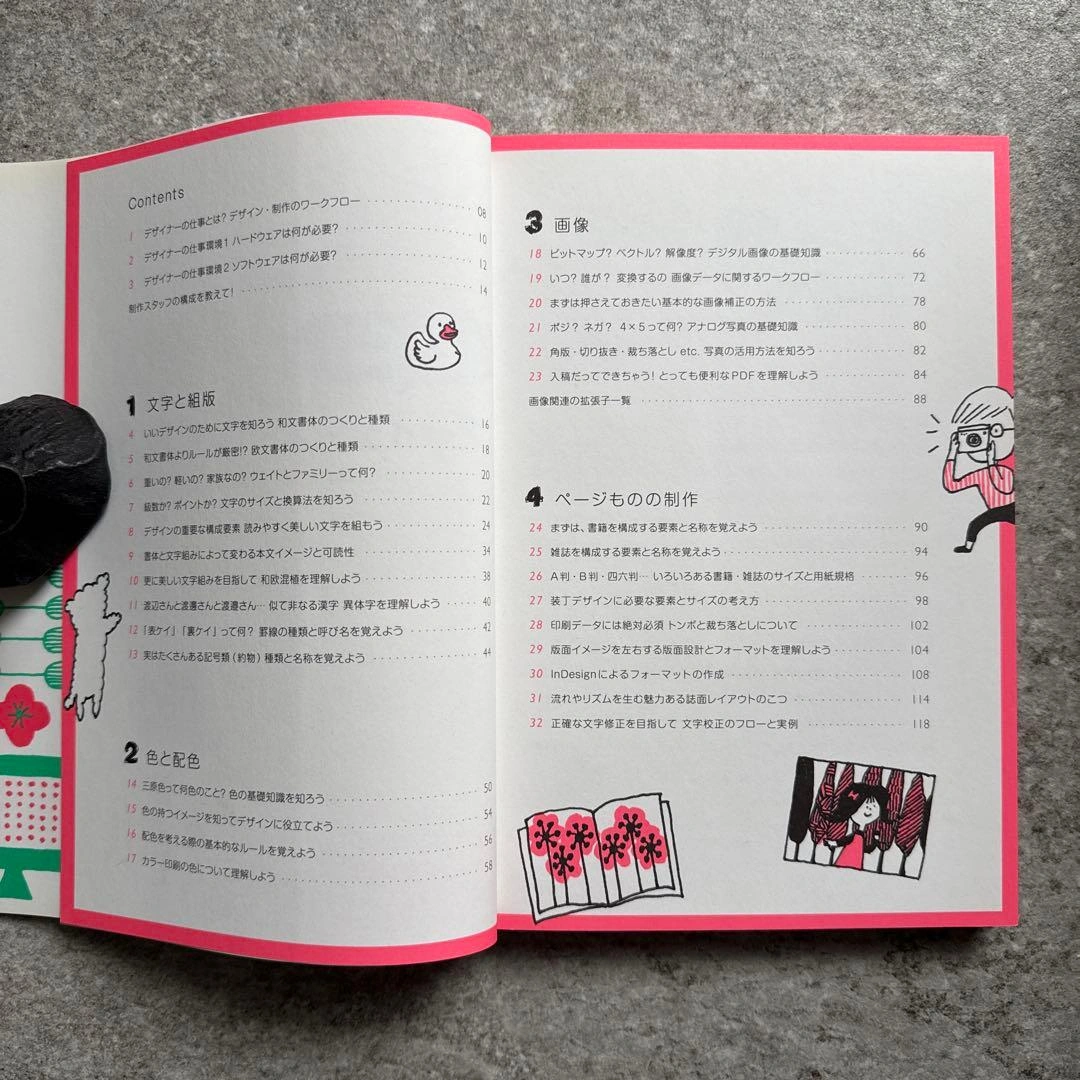 Contents
1 デザイナーの仕事とは? デザイン・制作のワークフロー 08
2 デザイナーの仕事環境1 ハードウェアは何が必要? 10
3 デザイナーの仕事環境2 ソフトウェアは何が必要? 12
制作スタッフの構成を教えて! 14
1 文字と組版
4 いいデザインのために文字を知ろう 和文書体のつくりと種類 16
5 和文書体よりルールが厳密!? 欧文書体のつくりと種類 18
6 重いの? 軽いの? 家族なの? ウェイトとファミリーって何? 20
7 級数か? ポイントか? 文字のサイズと換算法を知ろう 22
8 デザインの重要な構成要素 読みやすく美しい文字を組もう 24
9 書体と文字組みによって変わる本文イメージと可読性 34
10 更に美しい文字組みを目指して 和欧混植を理解しよう 38
11 渡辺さんと渡邊さんと渡邉さん… 似て非なる漢字 異体字を理解しよう 40
12 「表ケイ」「裏ケイ」って何? 罫線の種類と呼び名を覚えよう 42
13 実はたくさんある記号類(約物) 種類と名称を覚えよう 44
2 色と配色
14 三原色って何色のこと? 色の基礎知識を知ろう 50
15 色の持つイメージを知ってデザインに役立てよう 54
16 配色を考える際の基本的なルールを覚えよう 56
17 カラー印刷の色について理解しよう 58
3 画像
18 ビットマップ? ベクトル? 解像度? デジタル画像の基礎知識 66
19 いつ? 誰が? 変換するの 画像データに関するワークフロー 72
20 まずは押さえておきたい基本的な画像補正の方法 78
21 ポジ? ネガ? 4×5って何? アナログ写真の基礎知識 80
22 角版・切り抜き・裁ち落とし etc. 写真の活用方法を知ろう 82
23 入稿だってできちゃう! とっても便利なPDFを理解しよう 84
画像関連の拡張子一覧 88
4 ページものの制作
24 まずは、書籍を構成する要素と名称を覚えよう 90
25 雑誌を構成する要素と名称を覚えよう 94
26 A判・B判・四六判… いろいろある書籍・雑誌のサイズと用紙規格 96
27 装丁デザインに必要な要素とサイズの考え方 98
28 印刷データには絶対必須 トンボと裁ち落としについて 102
29 版面イメージを左右する版面設計とフォーマットを理解しよう 104
30 InDesignによるフォーマットの作成 108
31 流れやリズムを生む魅力ある誌面レイアウトのこつ 114
32 正確な文字修正を目指して 文字校正のフローと実例 118